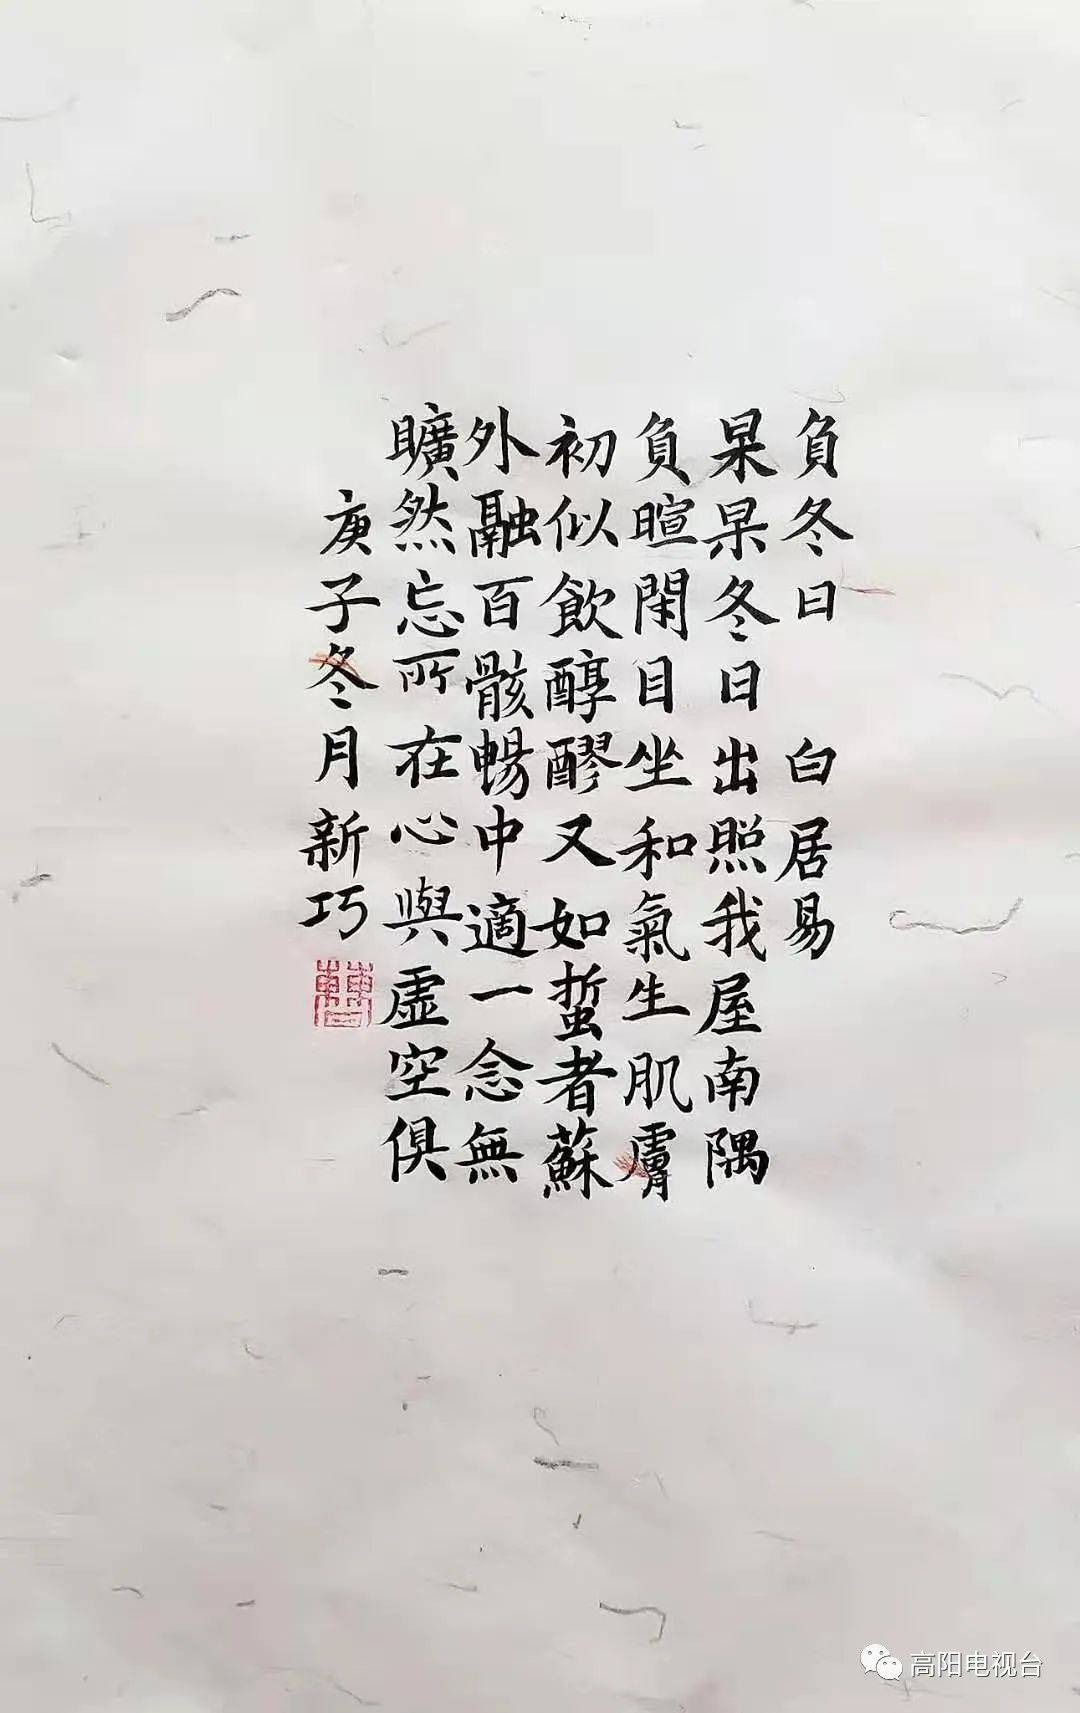 負冬日 白居易
杲杲冬日出照我屋南隅
負暄閑目坐和氣生肌膚
初似飲醇醪又如蟄者蘇
外融百骸暢中適一念無
曠然忘所在心與虛空俱
庚子冬月新巧
高阳电视台